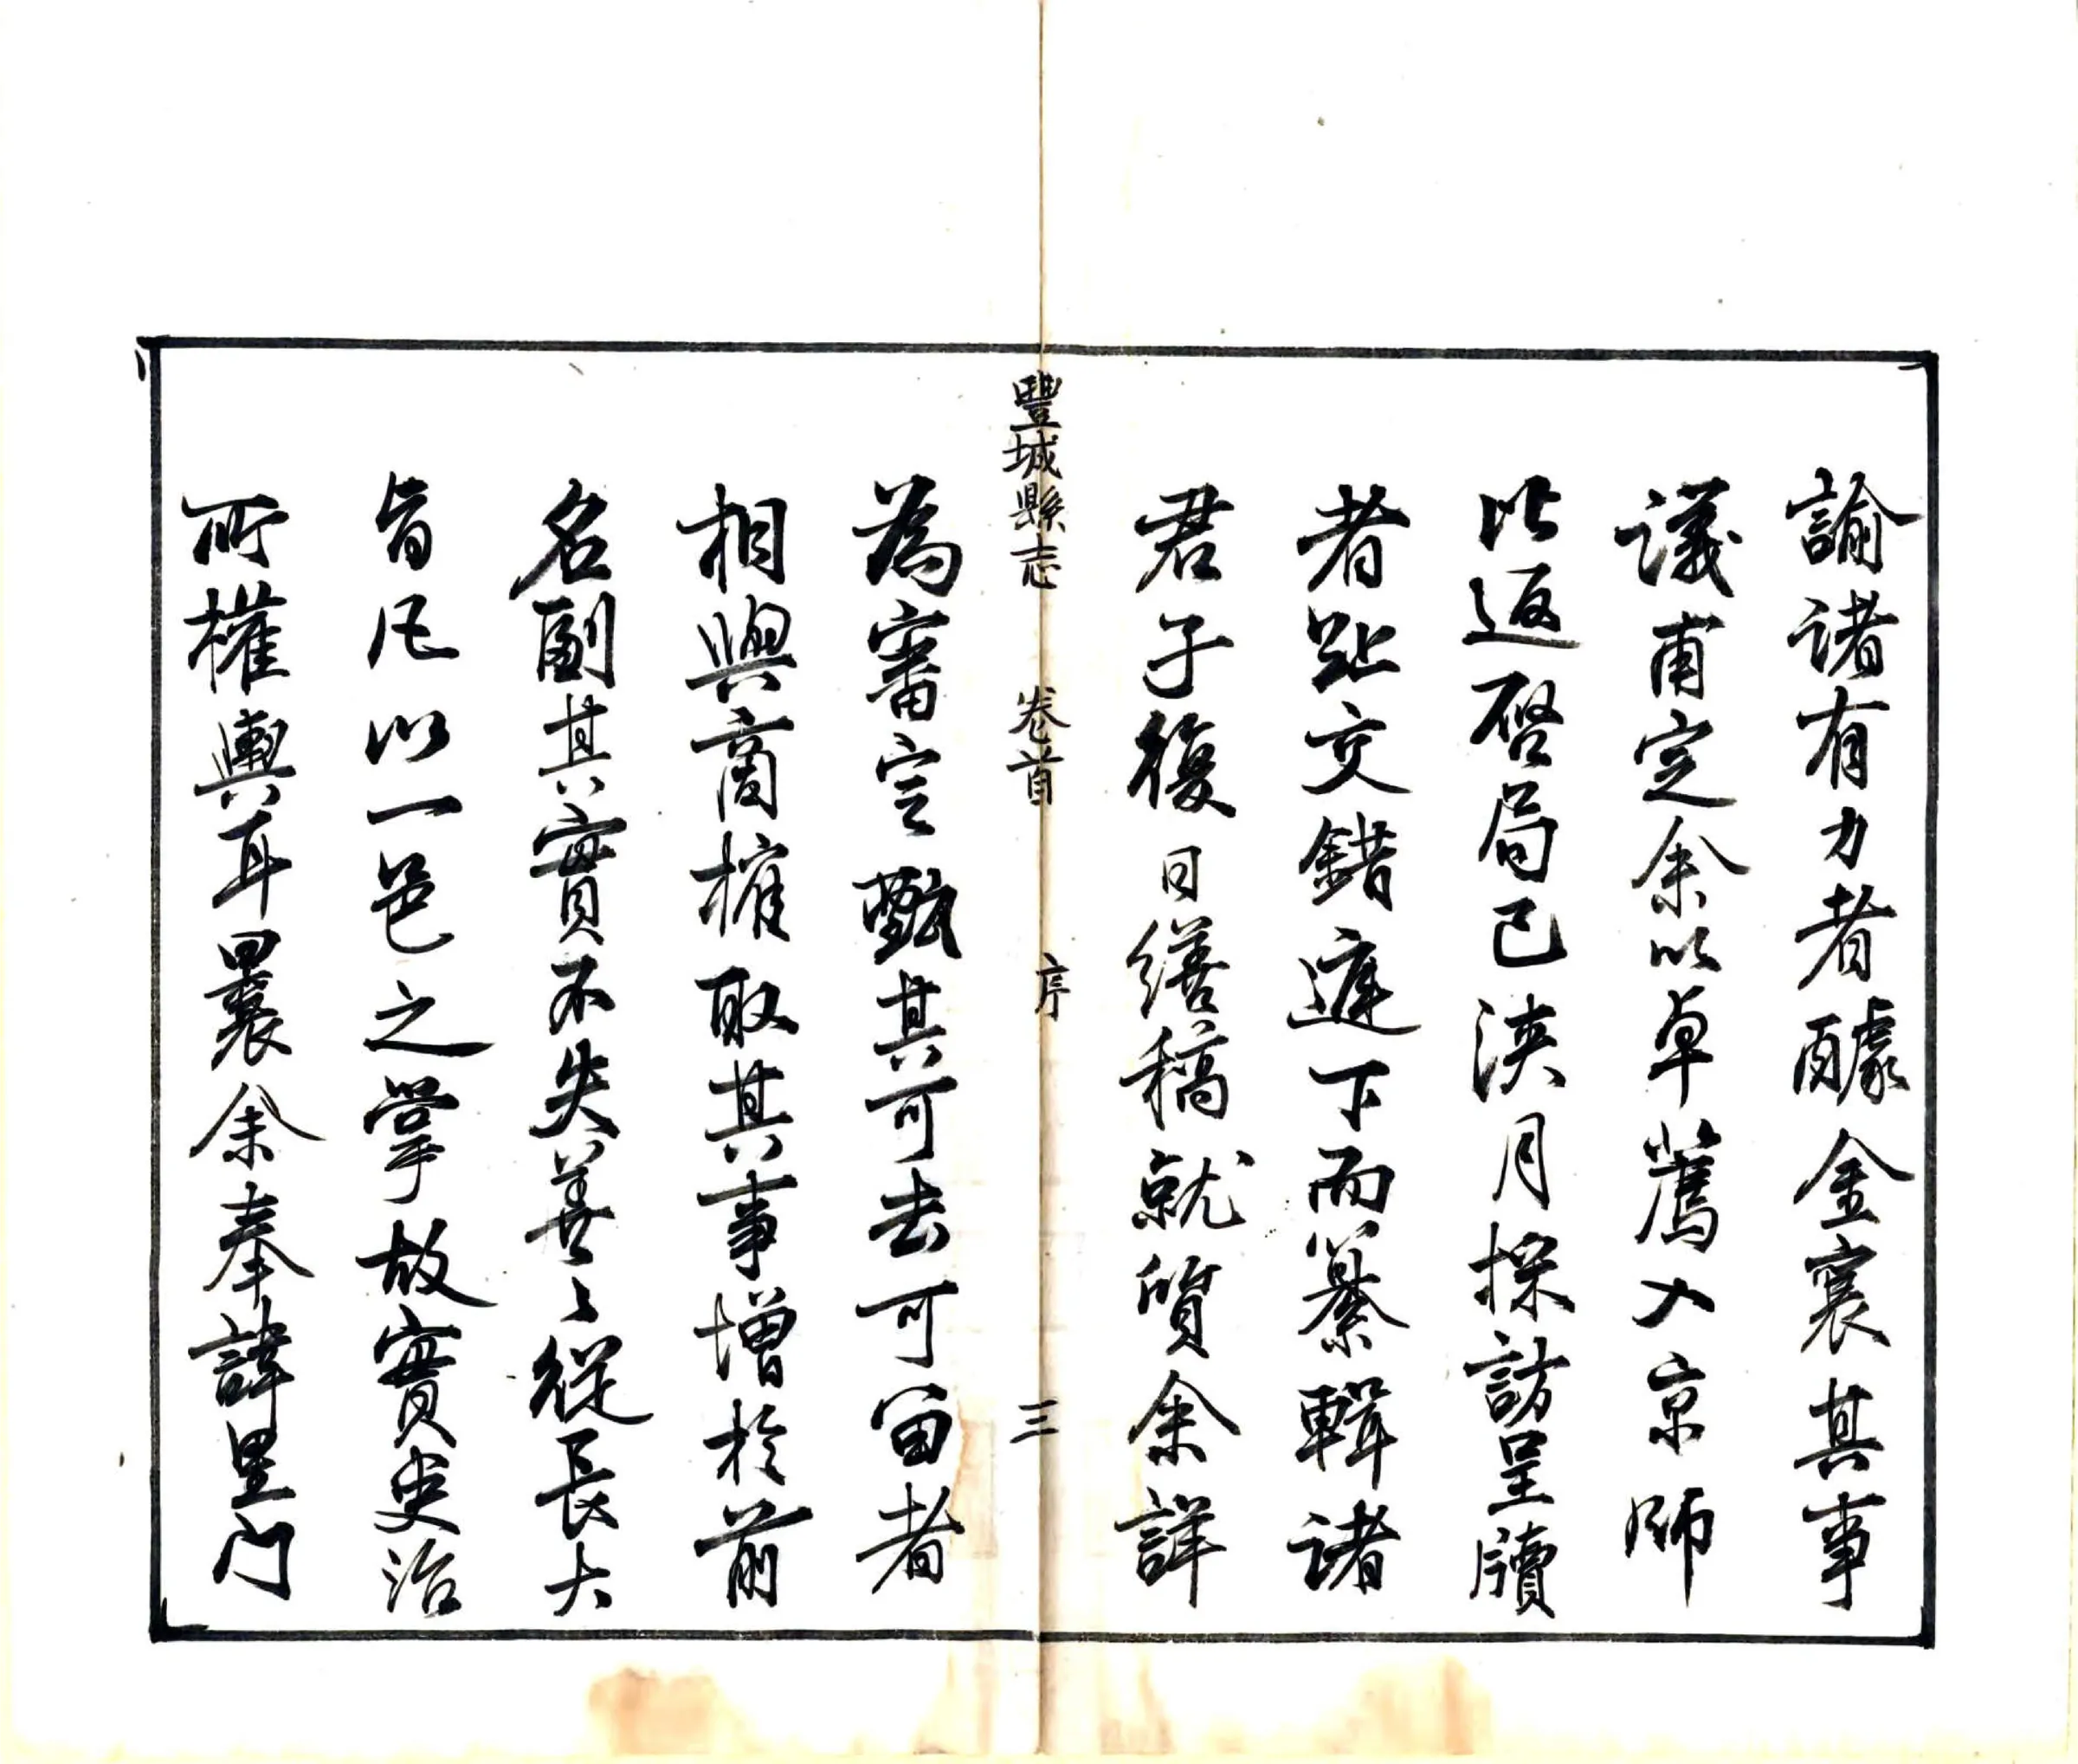 諭諸有力者醵金襄其事
議甫定余以卓薦入京師
比返啓局已浹月採訪呈牘
者趾交錯遝下而纂輯諸
君子復日繕稿就質余詳
豐城縣志 卷首 序 三
為審定甄其可去可留者
相與商榷取其事增於前
名副其實不失善〻從長大
旨凡以一邑之掌故實吏治
所權輿耳曩余奉諱里門